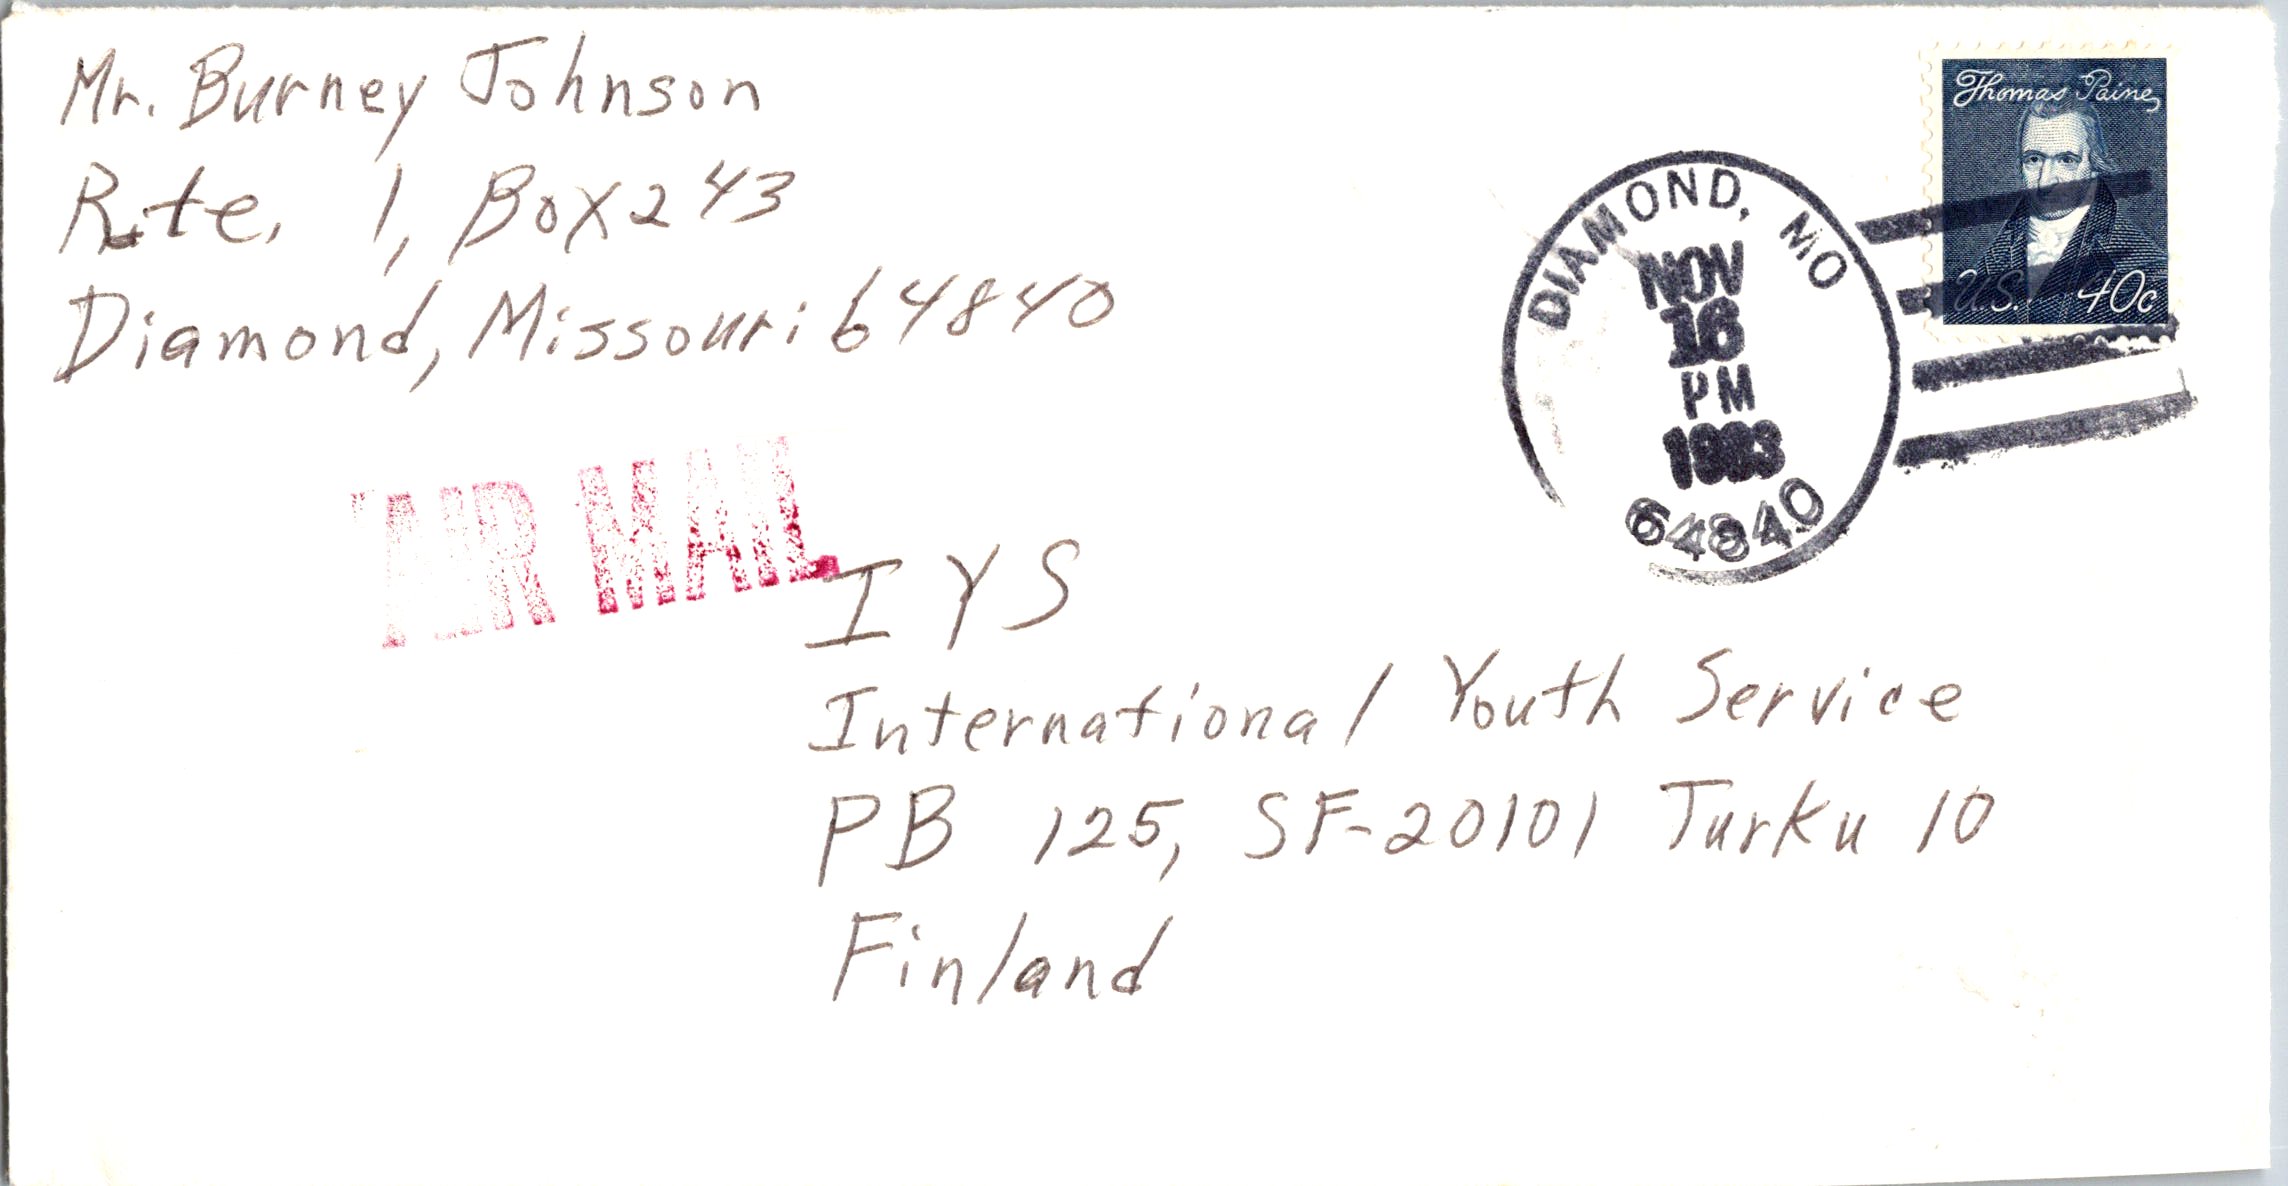 Mr. Burney Johnson
Rte. 1, Box 243
Diamond, Missouri 64840
Thomas Paine
U.S. 40c
DIAMOND, MO
NOV
16
PM
1983
64840
AIR MAIL
IYS
International Youth Service
PB 125, SF-20101 Turku 10
Finland